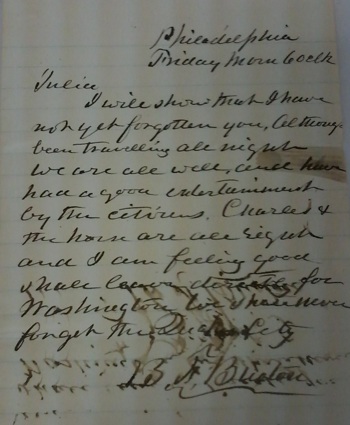 Philadelphia
Friday Morn 6 oclk
Julia
I will show that I have
not yet forgotten you, Although
been travelling all night
we are all well, and have
had a good entertainment
by the citizens. Charles &
the horse are all right
and I am feeling good
shall leave directly for
Washington we shall never
forget the Quaker City